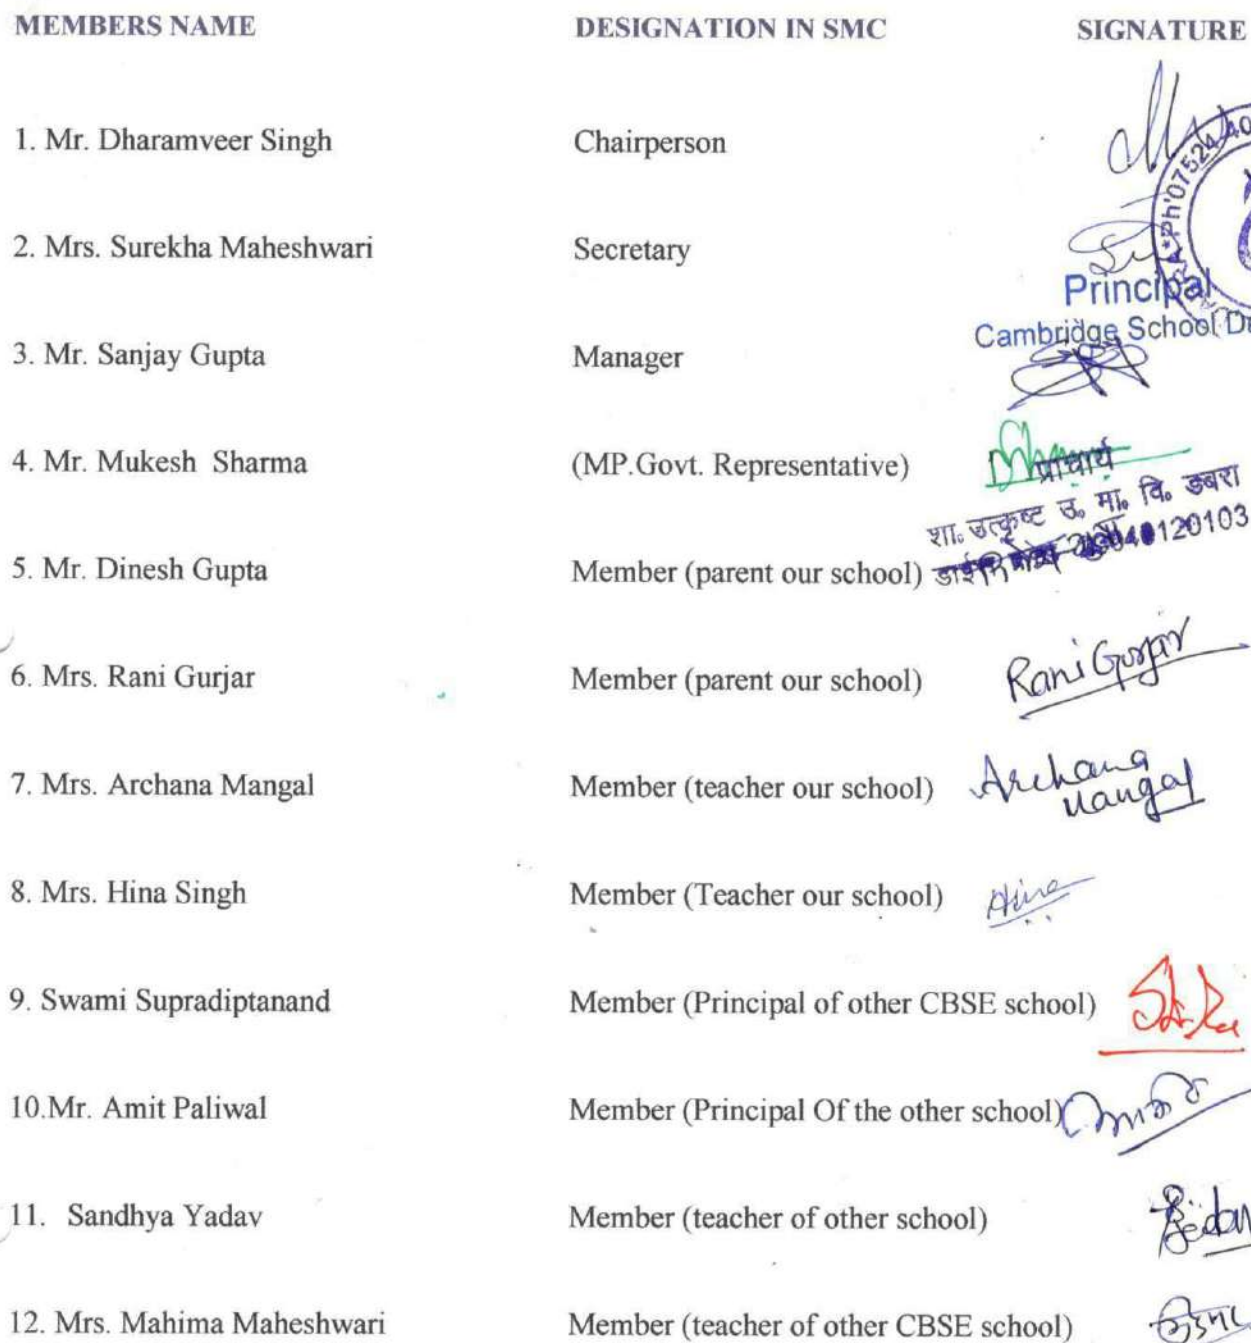 MEMBERS NAME DESIGNATION IN SMC SIGNATURE
1. Mr. Dharamveer Singh Chairperson
2. Mrs. Surekha Maheshwari Secretary
Principal
Cambridge School
3. Mr. Sanjay Gupta Manager
4. Mr. Mukesh Sharma (MP.Govt. Representative)
प्राचार्य
शा. उत्कृष्ट उ. मा. वि. डबरा
5. Mr. Dinesh Gupta Member (parent our school)
6. Mrs. Rani Gurjar Member (parent our school) Rani Gurjar
7. Mrs. Archana Mangal Member (teacher our school) Archana
Mangal
8. Mrs. Hina Singh Member (Teacher our school) Hina
9. Swami Supradiptanand Member (Principal of other CBSE school)
10.Mr. Amit Paliwal Member (Principal Of the other school)
11. Sandhya Yadav Member (teacher of other school)
12. Mrs. Mahima Maheshwari Member (teacher of other CBSE school)